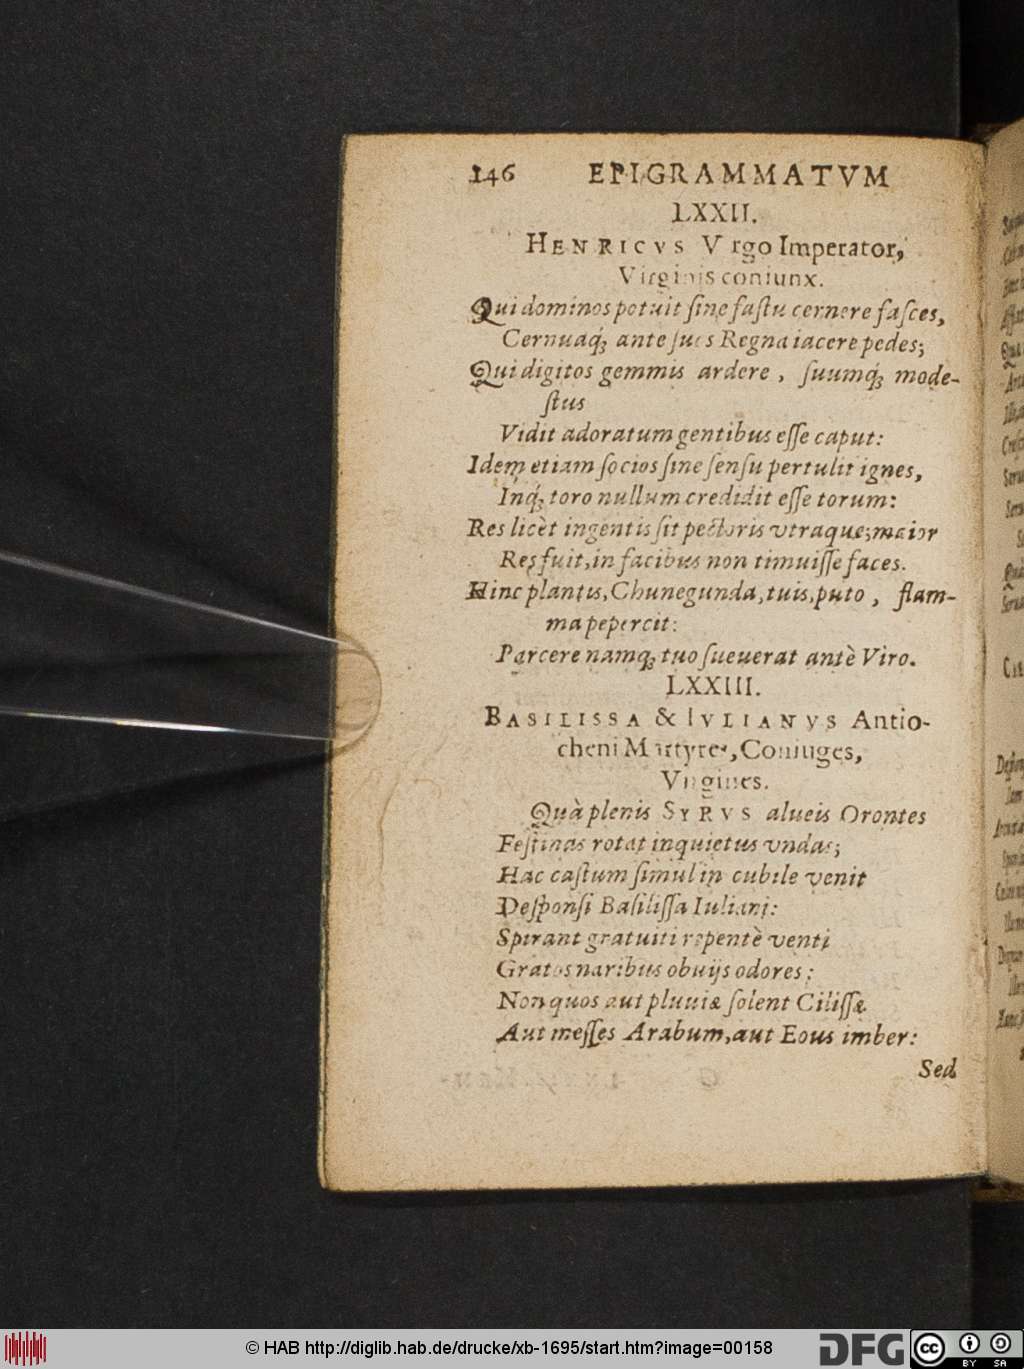 146 EPIGRAMMATVM
LXXII.
HENRICVS Virgo Imperator,
Virginis coniunx.
Qui dominos potuit ſine faſtu cernere faſces,
Cernuaq́; ante ſuos Regna iacere pedes;
Qui digitos gemmis ardere, ſuumq́; mode-
ſtus
Vidit adoratum gentibus eſſe caput:
Idem etiam ſocios ſine ſenſu pertulit ignes,
Inq́; toro nullum credidit eſſe torum:
Res licèt ingentis ſit pectoris vtraque; maior
Res fuit, in facibus non timuiſſe faces.
Hinc plantis, Chunegunda, tuis, puto, flam-
ma pepercit:
Parcere namq; tuo ſueuerat antè Viro.
LXXIII.
BASILISSA & IVLIANVS Antio-
cheni Martyres, Coniuges,
Virgines.
Quà plenis SYRVS alueis Orontes
Feſtinas rotat inquietus vndas;
Hac caſtum ſimul in cubile venit
Deſponſi Baſiliſſa Iuliani:
Spirant gratuiti repentè venti
Gratos naribus obuijs odores:
Non quos aut pluuiæ ſolent Ciliſſæ
Aut meſſes Arabum, aut Eous imber:
Sed
© HAB http://diglib.hab.de/drucke/xb-1695/start.htm?image=00158
DFG
cc
BY SA